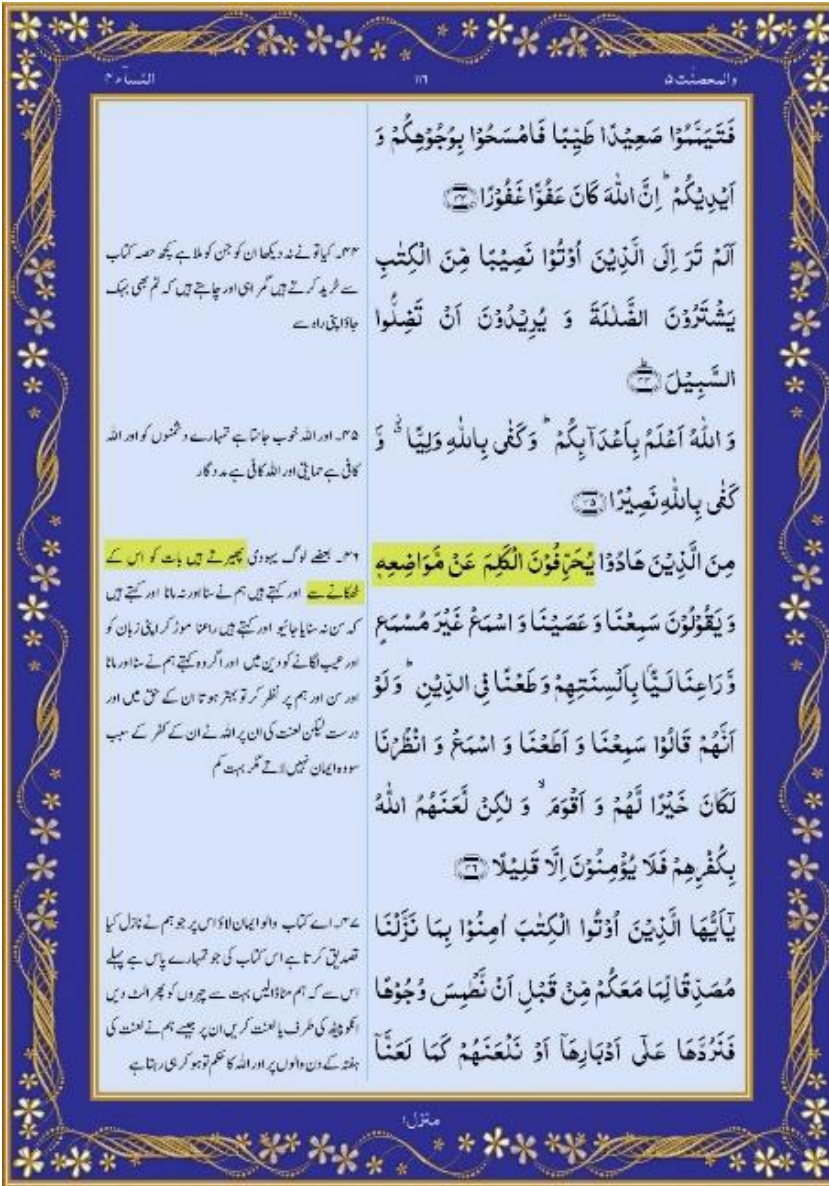 والمحصنٰت ۵
۱۱۶
النسآء ۴
فَتَيَمَّمُوْا صَعِيْدًا طَيِّبًا فَامْسَحُوْا بِوُجُوْهِكُمْ وَ
اَيْدِيْكُمْ ؕ اِنَّ اللّٰهَ كَانَ عَفُوًّا غَفُوْرًا ﴿۴۳﴾
اَلَمْ تَرَ اِلَى الَّذِيْنَ اُوْتُوْا نَصِيْبًا مِّنَ الْكِتٰبِ
يَشْتَرُوْنَ الضَّلٰلَةَ وَ يُرِيْدُوْنَ اَنْ تَضِلُّوا
السَّبِيْلَ ﴿ؕ۴۴﴾
وَ اللّٰهُ اَعْلَمُ بِاَعْدَآىِٕكُمْ ؕ وَكَفٰى بِاللّٰهِ وَلِيًّا ۗۙ وَّ
كَفٰى بِاللّٰهِ نَصِيْرًا ﴿۴۵﴾
مِنَ الَّذِيْنَ هَادُوْا يُحَرِّفُوْنَ الْكَلِمَ عَنْ مَّوَاضِعِهٖ
وَ يَقُوْلُوْنَ سَمِعْنَا وَ عَصَيْنَا وَ اسْمَعْ غَيْرَ مُسْمَعٍ
وَّ رَاعِنَا لَـيًّۢا بِاَلْسِنَتِهِمْ وَ طَعْنًا فِى الدِّيْنِ ؕ وَ لَوْ
اَنَّهُمْ قَالُوْا سَمِعْنَا وَ اَطَعْنَا وَ اسْمَعْ وَ انْظُرْنَا
لَكَانَ خَيْرًا لَّهُمْ وَ اَقْوَمَ ۙ وَ لٰكِنْ لَّعَنَهُمُ اللّٰهُ
بِكُفْرِهِمْ فَلَا يُؤْمِنُوْنَ اِلَّا قَلِيْلًا ﴿۴۶﴾
يٰۤاَيُّهَا الَّذِيْنَ اُوْتُوا الْكِتٰبَ اٰمِنُوْا بِمَا نَزَّلْنَا
مُصَدِّقًا لِّمَا مَعَكُمْ مِّنْ قَبْلِ اَنْ نَّطْمِسَ وُجُوْهًا
فَنَرُدَّهَا عَلٰۤى اَدْبَارِهَاۤ اَوْ نَلْعَنَهُمْ كَمَا لَعَنَّاۤ
۴۴۔ کیا تو نے نہ دیکھا ان کو جن کو ملا ہے کچھ حصہ کتاب
سے خرید کرتے ہیں گمراہی اور چاہتے ہیں کہ تم بھی بہک
جاؤ اپنی راہ سے
۴۵۔ اور اللہ خوب جانتا ہے تمہارے دشمنوں کو اور اللہ
کافی ہے حمایتی اور اللہ کافی ہے مددگار
۴۶۔ بعضے لوگ یہودی پھیرتے ہیں بات کو اس کے
ٹھکانے سے اور کہتے ہیں ہم نے سنا اور نہ مانا اور کہتے ہیں
کہ سن نہ سنایا جائیو اور کہتے ہیں راعنا موڑ کر اپنی زبان کو
اور عیب لگانے کو دین میں اور اگر وہ کہتے ہم نے سنا اور مانا
اور سن اور ہم پر نظر کر تو بہتر ہوتا ان کے حق میں اور
درست لیکن لعنت کی ان پر اللہ نے ان کے کفر کے سبب
سو وہ ایمان نہیں لاتے مگر بہت کم
۴۷۔ اے کتاب والو ایمان لاؤ اس پر جو ہم نے نازل کیا
تصدیق کرتا ہے اس کتاب کی جو تمہارے پاس ہے پہلے
اس سے کہ ہم مٹا ڈالیں بہت سے چہروں کو پھر الٹ دیں
انکو پیٹھ کی طرف یا لعنت کریں ان پر جیسے ہم نے لعنت کی
ہفتہ کے دن والوں پر اور اللہ کا حکم تو ہو کر ہی رہتا ہے
منزل ۱